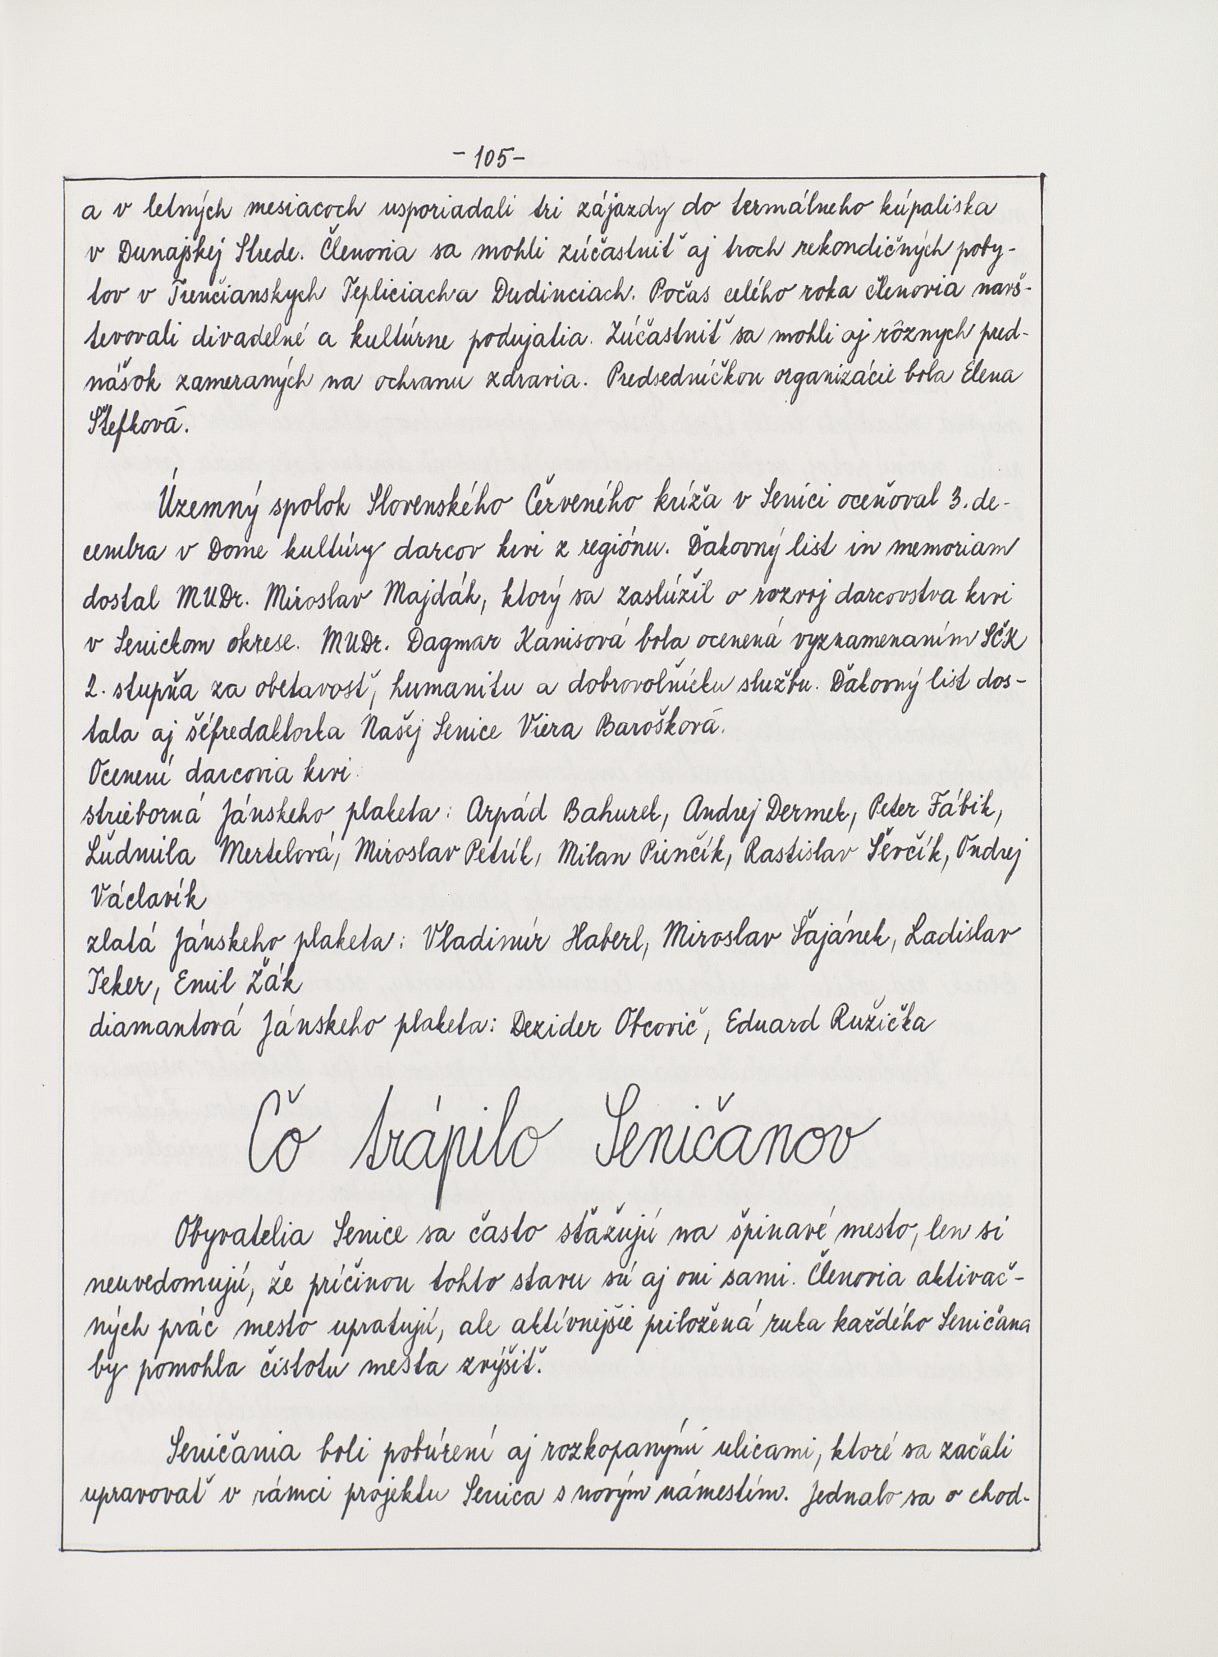 - 105 -
a v letných mesiacoch usporiadali tri zájazdy do termálneho kúpaliska
v Dunajskej Strede. Členovia sa mohli zúčastniť aj troch rekondičných poby-
tov v Trenčianskych Tepliciach a Dudinciach. Počas celého roka členovia navš-
tevovali divadelné a kultúrne podujatia. Zúčastniť sa mohli aj rôznych pred-
nášok zameraných na ochranu zdravia. Predsedníčkou organizácie bola Elena
Štefková.
Územný spolok Slovenského Červeného kríža v Senici oceňoval 3. de-
cembra v Dome kultúry darcov krvi z regiónu. Ďakovný list in memoriam
dostal MUDr. Miroslav Majdák, ktorý sa zaslúžil o rozvoj darcovstva krvi
v Senickom okrese. MUDr. Dagmar Kanisová bola ocenená vyznamenaním SČK
2. stupňa za obetavosť, humanitu a dobrovoľnícku službu. Ďakovný list dos-
tala aj šéfredaktorka Našej Senice Viera Barošková.
Ocenení darcovia krvi:
strieborná Jánskeho plaketa: Arpád Bahurek, Andrej Dermek, Peter Fábik,
Ľudmila Mertelová, Miroslav Petrík, Milan Pienčík, Rastislav Ševčík, Ondrej
Václavík
zlatá Jánskeho plaketa: Vladimír Haberl, Miroslav Šajánek, Ladislav
Teker, Emil Žák
diamantová Jánskeho plaketa: Dezider Obcovič, Eduard Ružička
Čo trápilo Seničanov
Obyvatelia Senice sa často sťažujú na špinavé mesto, len si
neuvedomujú, že príčinou tohto stavu sú aj oni sami. Členovia aktivač-
ných prác mesto upratujú, ale aktívnejšie priložená ruka každého Seničana
by pomohla čistotu mesta zvýšiť.
Seničania boli pobúrení aj rozkopanými ulicami, ktoré sa začali
upravovať v rámci projektu Senica s novým námestím. Jednalo sa o chod-